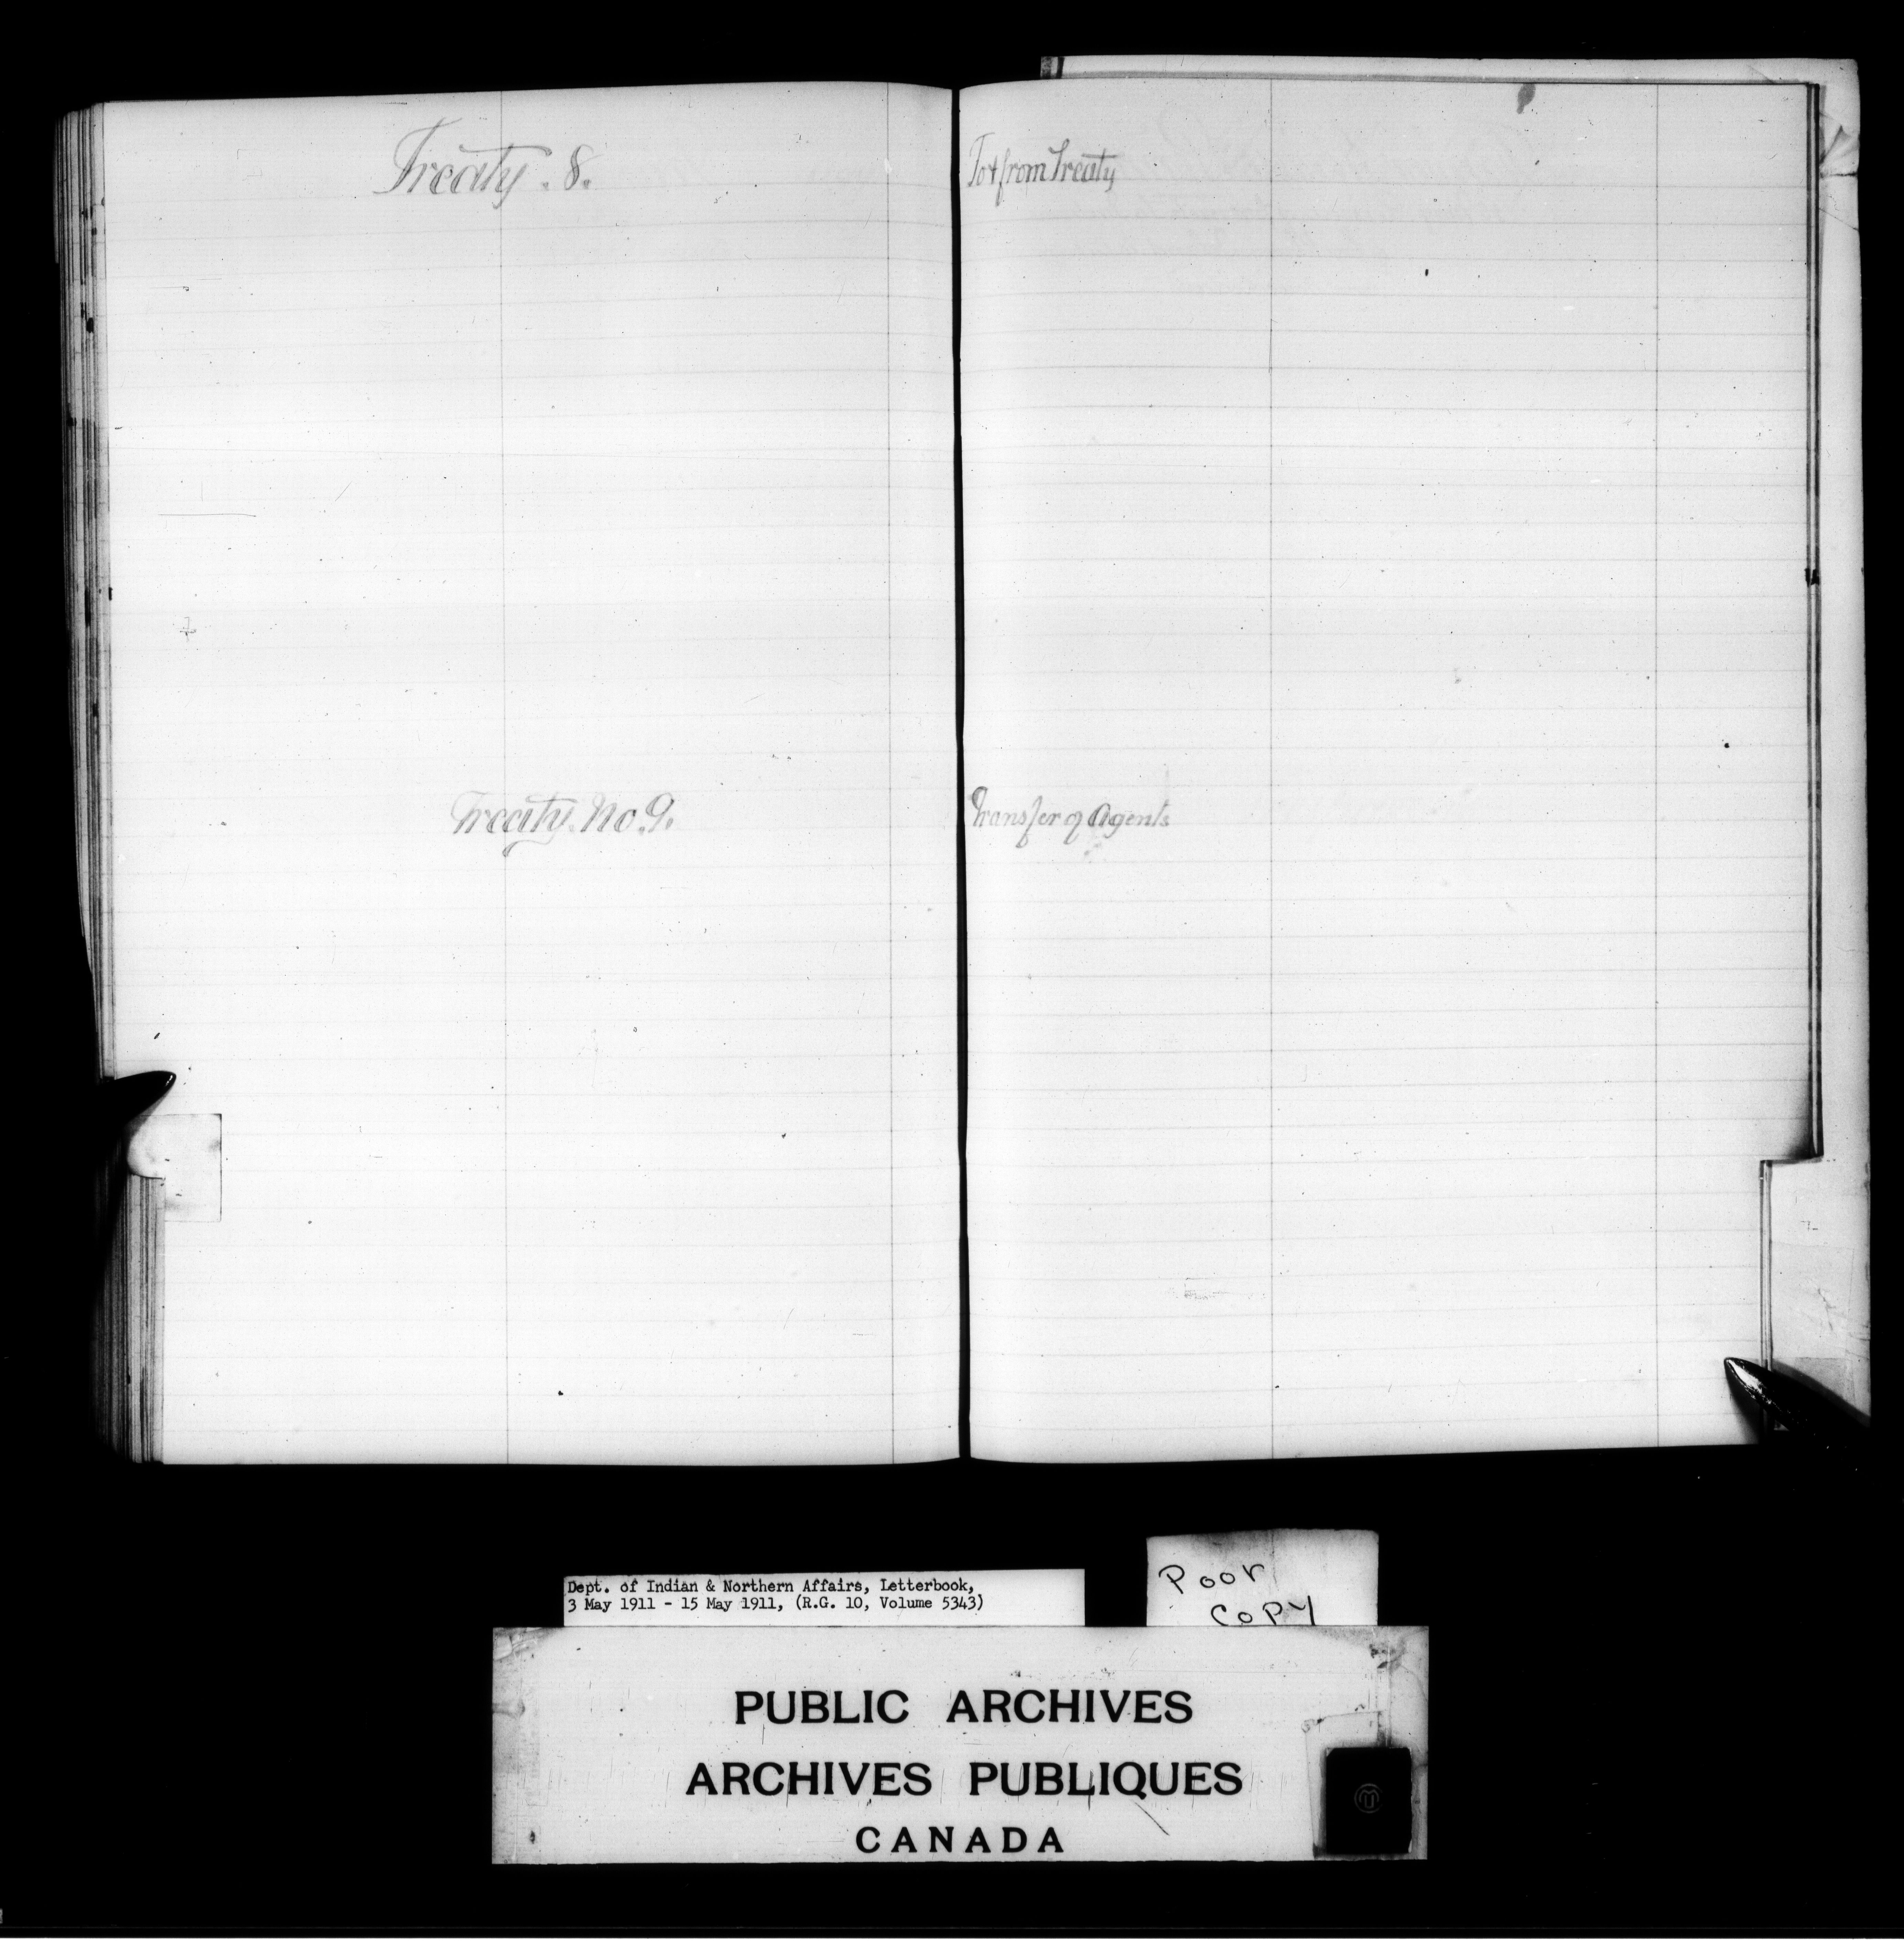 Treaty. 8.
Treaty. No. 9.
To & from Treaty
Transfer of Agents
Dept. of Indian & Northern Affairs, Letterbook,
3 May 1911 - 15 May 1911, (R.G. 10, Volume 5343)
Poor
Copy
PUBLIC ARCHIVES
ARCHIVES PUBLIQUES
CANADA